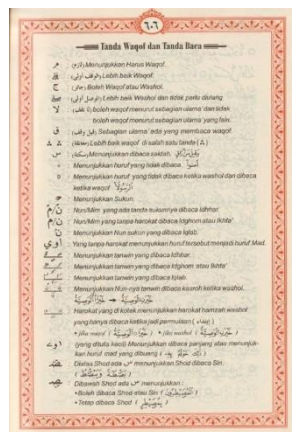 ٦٠٦
Tanda Waqof dan Tanda Baca
م (لازم) Menunjukkan Harus Waqof.
(الوقف أولى) Lebih baik Waqof.
ج (جائز) Boleh Waqof atau Washol.
(الوصل أولى) Lebih baik Washol dan tidak perlu diulang
لا boleh waqof menurut sebagian ulama' dan tidak
boleh waqof menurut sebagian ulama' yang lain.
ق (قيل وقف) Sebagian ulama' ada yang membaca waqof.
Lebih baik waqof di salah satu tanda
س Menunjukkan dibaca saktah.
Menunjukkan huruf yang tidak dibaca.
Menunjukkan huruf yang tidak dibaca ketika washol dan dibaca
ketika waqof
Menunjukkan Sukun.
Nun/Mim yang ada tanda sukunnya dibaca Idhhar.
Nun/Mim yang tanpa harokat dibaca Idghom atau Ikhfa'
Menunjukkan Nun sukun yang dibaca Iqlab.
اوي Yang tanpa harokat menunjukkan huruf tersebut menjadi huruf Mad.
Menunjukkan tanwin yang dibaca Idhhar.
Menunjukkan tanwin yang dibaca Idghom atau Ikhfa'
Menunjukkan tanwin yang dibaca Iqlab.
Menunjukkan Nun-nya tanwin dibaca kasroh ketika washol.
Harokat yang di kotak menunjukkan harokat hamzah washol
yang hanya dibaca ketika jadi permulaan
• jika waqof • jika washol
(yang ditulis kecil) Menunjukkan dibaca panjang atau menunjuk-
kan huruf mad yang dibuang
Diatas Shod ada س menunjukkan Shod dibaca Sin.
Dibawah Shod ada س menunjukkan :
• Boleh dibaca Shod atau Sin
• Tetap dibaca Shod